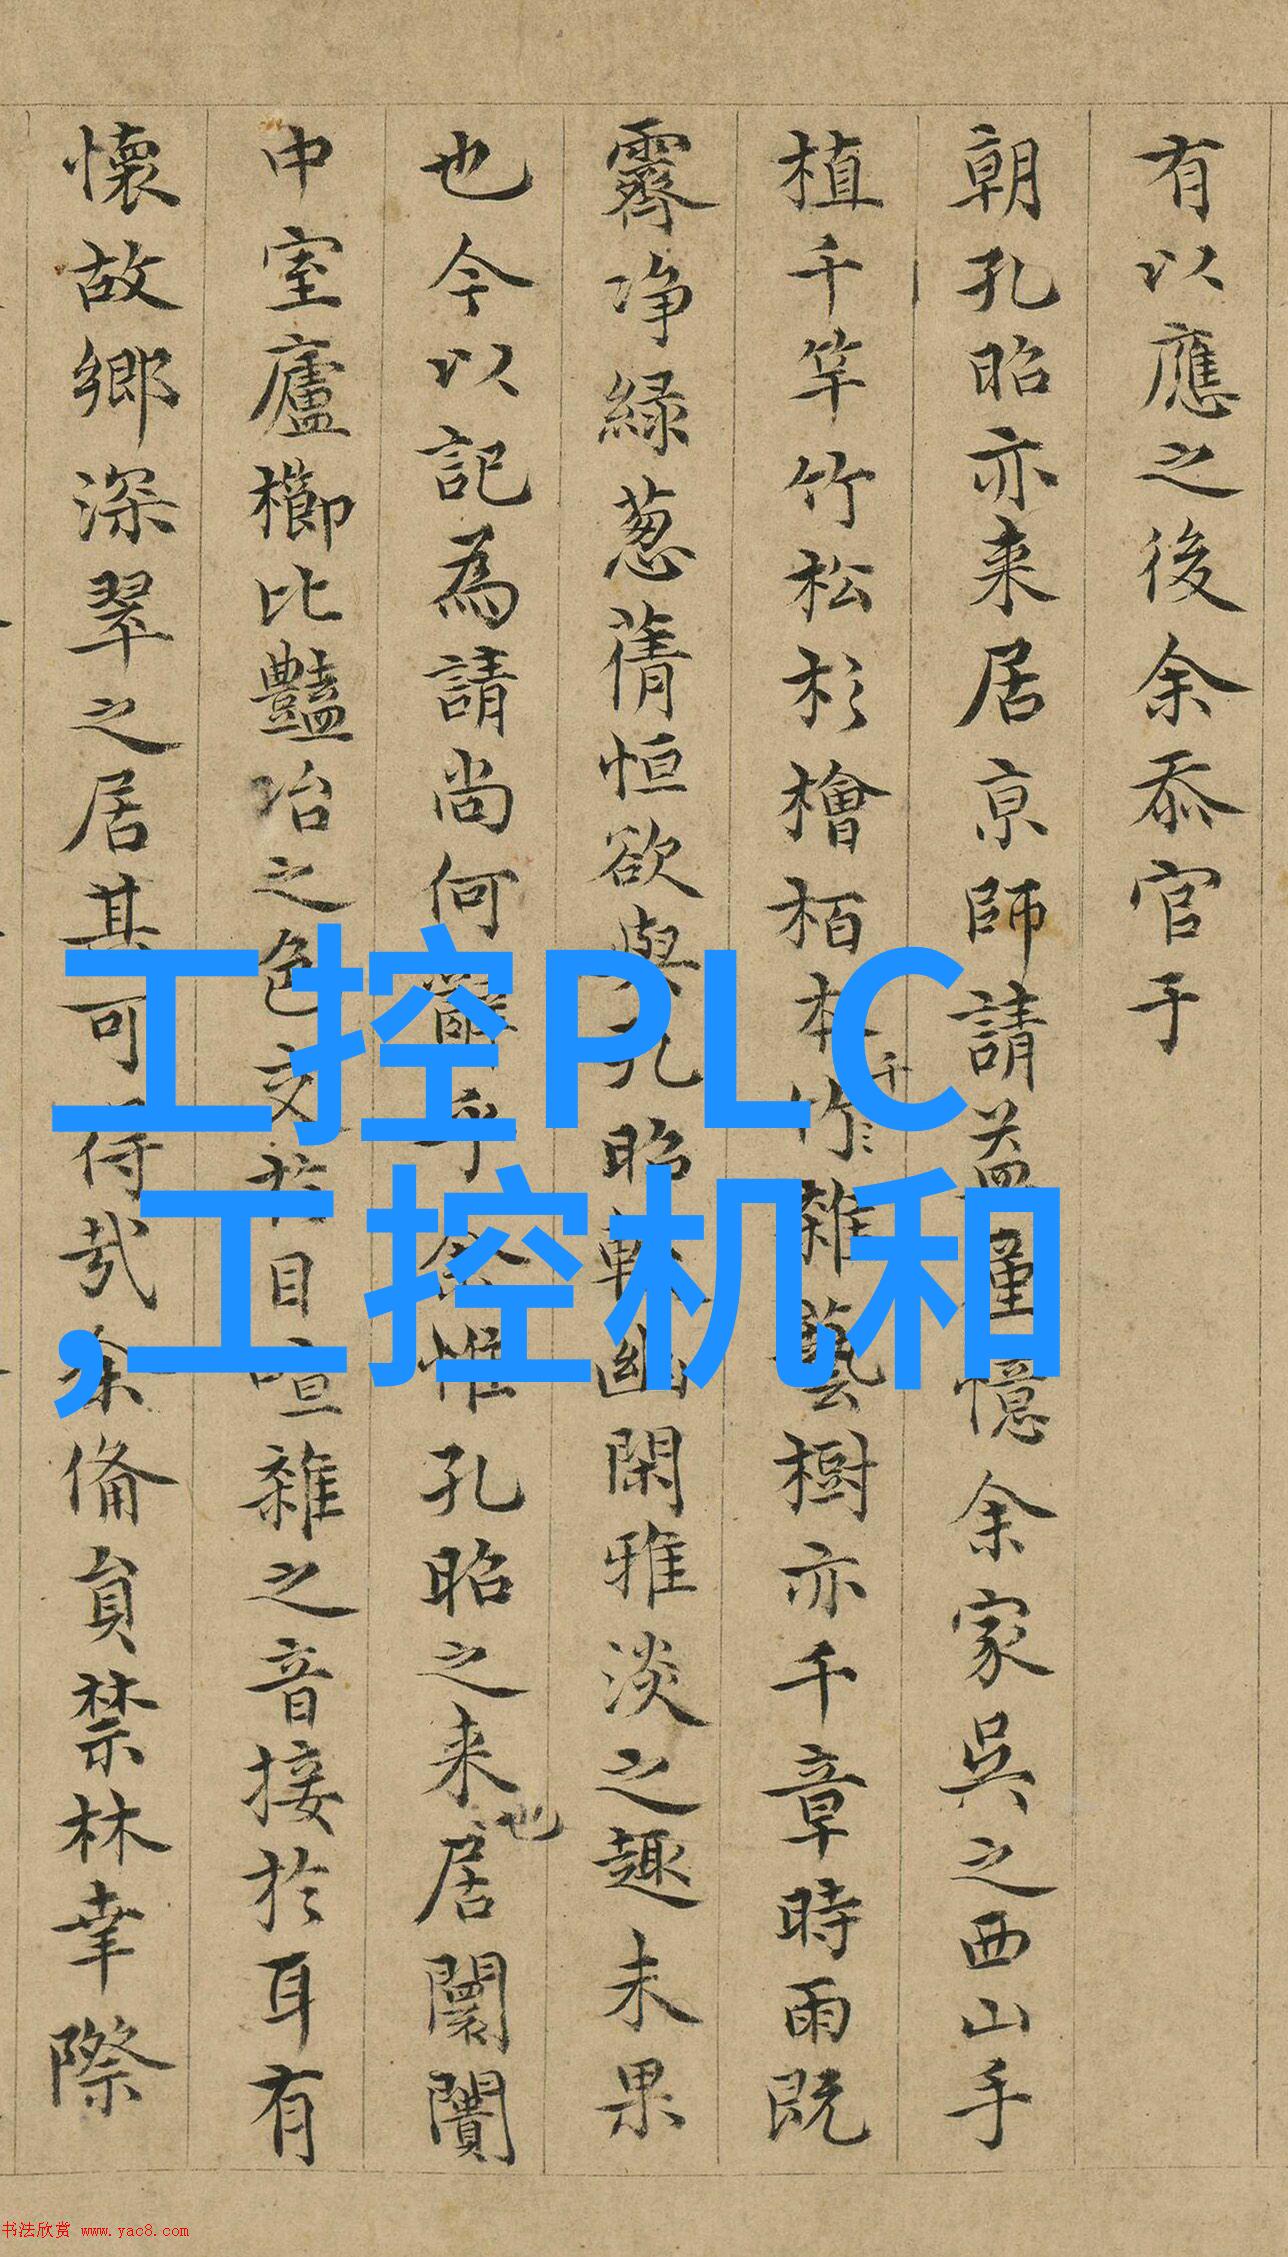 有以應之後余忝官于
朝孔昭亦来居京師請憶余家吳之西山手
植千竿竹松杉檜栢本千竹雜藝樹亦千章時雨既
霽净緑葱蒨恒欲與孔昭幽閑雅淡之趣未果
也今以記為請尚何辭乎余惟孔昭之来也居闤闠
中室廬櫛比豔冶之色交於目喧雜之音接於耳有
懷故鄉深翠之居其可得哉余備員禁林幸際
工控PLC
,工控机和
书法欣赏 www.yac8.com